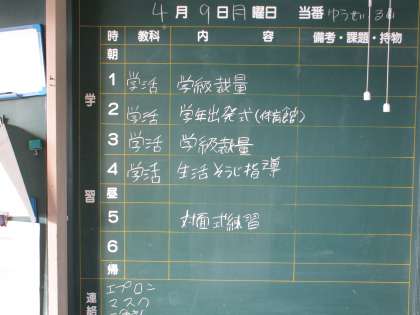 4月9日月曜日 当番 ゆうせい
時 教科 内容 備考・課題・持物
朝
1 学活 学級裁量
2 学活 学年出発式(体育館)
3 学活 学級裁量
4 学活 生活そうじ指導
昼
5 対面式練習
6
帰
学習
連絡
エプロン
マスク